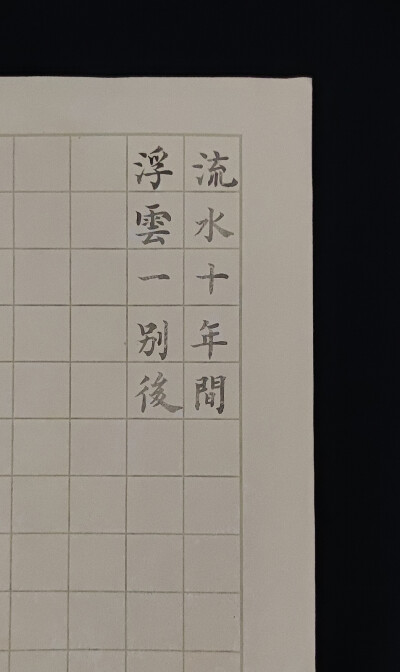 流水十年間
浮雲一别後